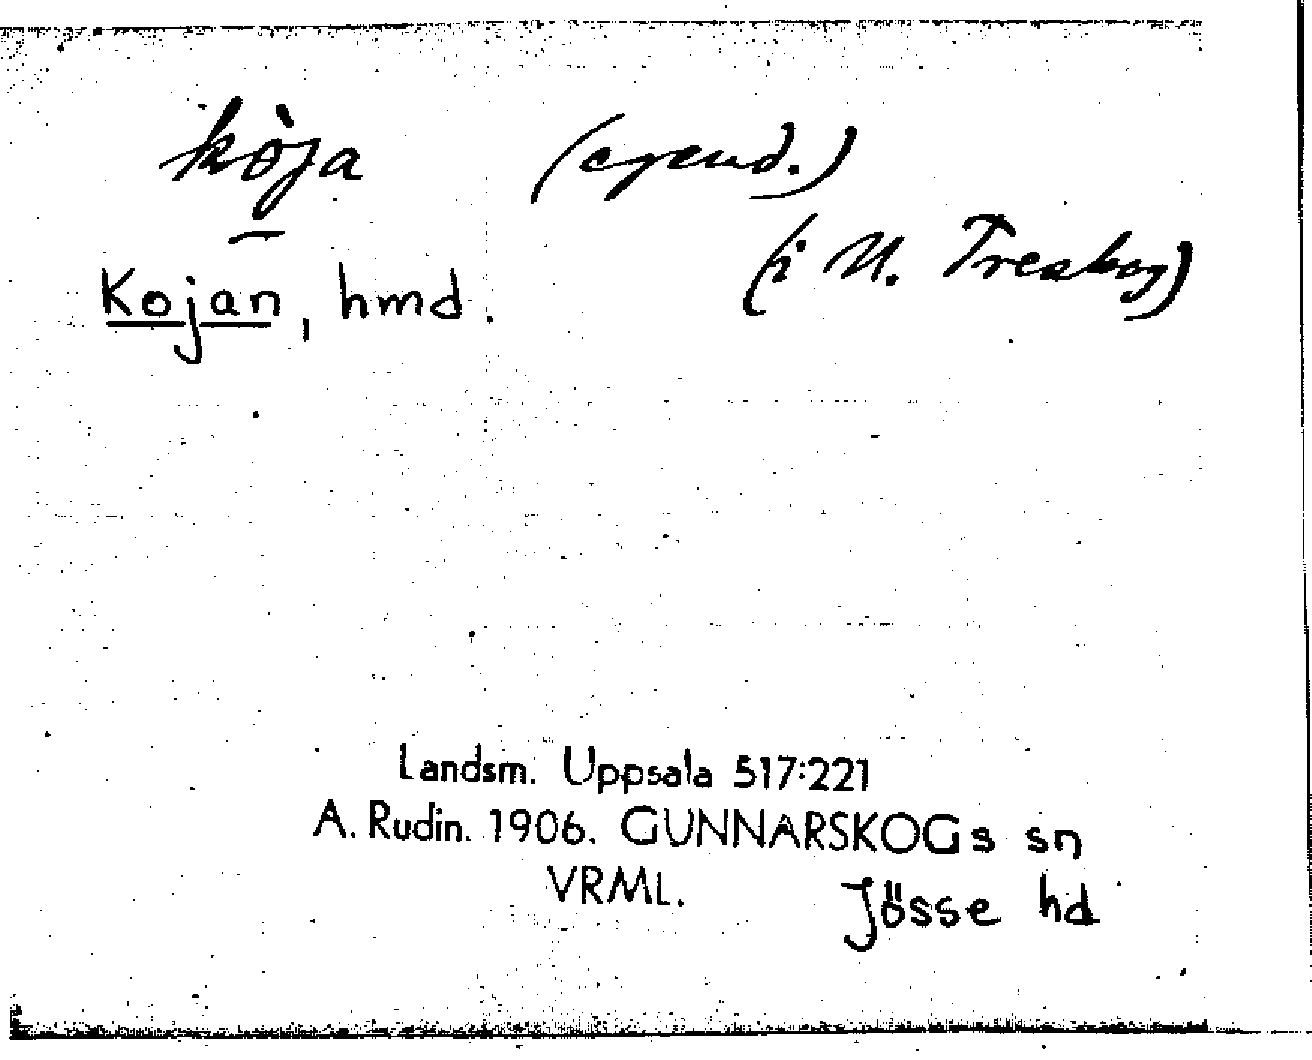 kòja (egend.)
(i N. Treskog)
Kojan, hmd.
Landsm. Uppsala 517:221
A. Rudin. 1906. GUNNARSKOGs sn
VRML. Jösse hd